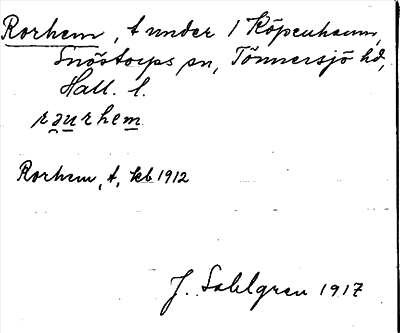 Rorhem, t under 1 Köpenhamn,
Snöstorps sn, Tönnersjö hd,
Hall. l.
raurhem
Rorhem, t, kb 1912
J. Sahlgren 1917